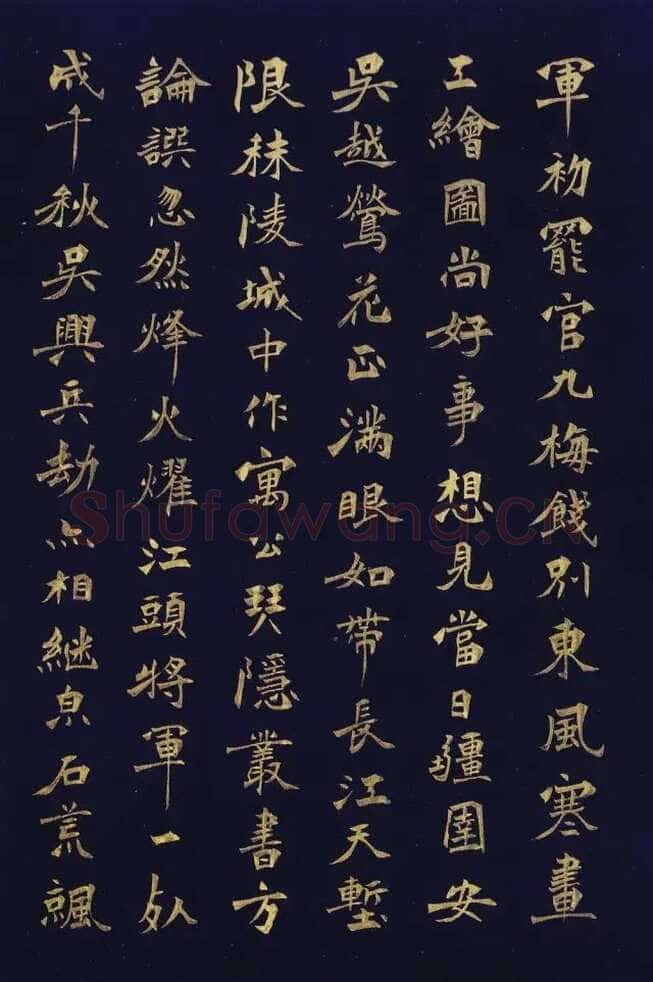 軍初罷官九梅餞別東風寒畫
工繪圖尚好事想見當日疆圉安
吳越鶯花正滿眼如帶長江天塹
限秣陵城中作寓公琴隱叢書方
論譔忽然烽火耀江頭將軍一死
成千秋吳興兵劫亦相繼泉石荒颯
Shufawang.cn